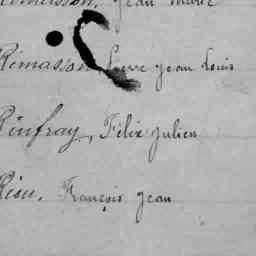 Jean Marie
Rémasson Pierre Jean Louis
Rinfray, Félix Julien
Riou, François Jean